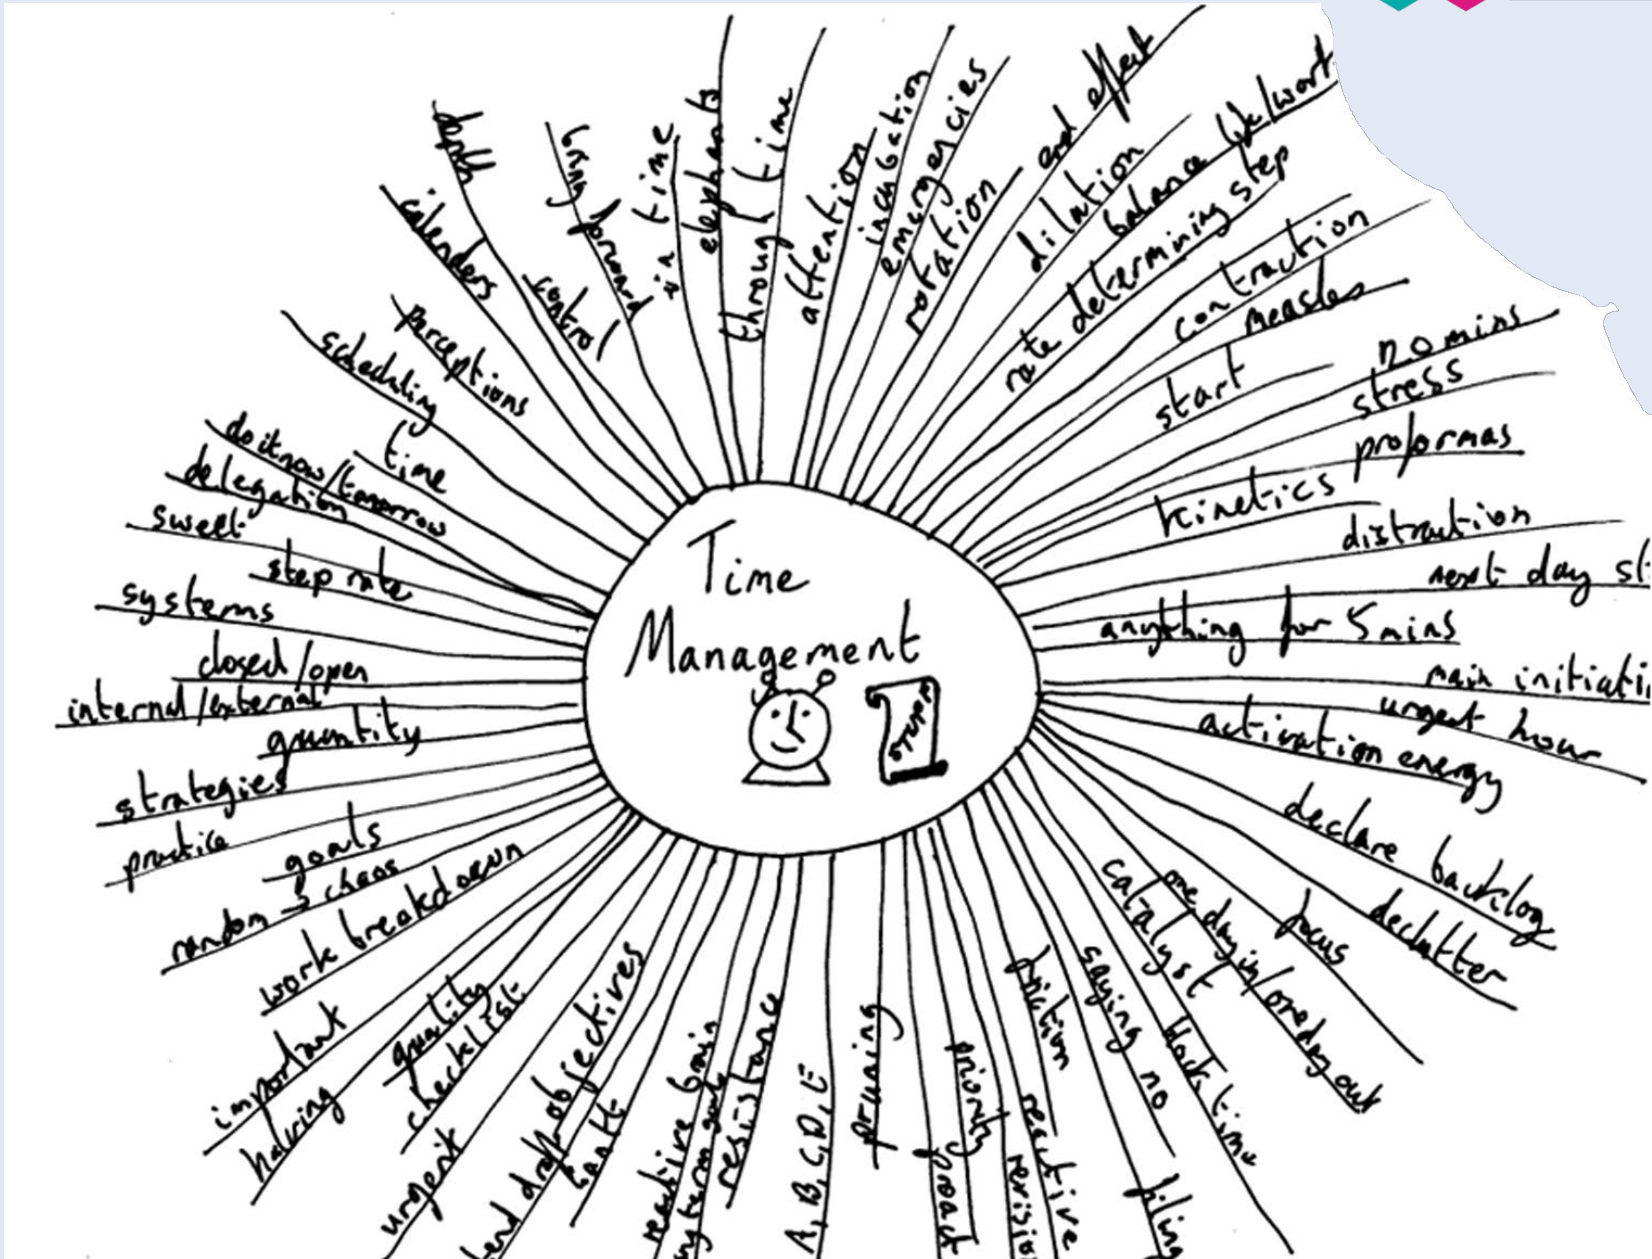 Time
Management
depth
bring forward
in time
elephants
through time
attention
incubation
emergencies
notation
and effect
dilation
balance life/work
rate determining step
contraction
measles
start
no mins
stress
proformas
kinetics
distraction
next day st
anything for 5 mins
main initiati
urgent hour
activation energy
declare backlog
declutter
focus
one day in/one day out
catalyst
block time
saying no
filing
friction
reactive
revisio
priority
proact
pruning
A, B, C, D, E
resistance
reactive brain
gantt
objectives
urgent
checklist
quality
halving
important
work breakdown
random → chaos
goals
practice
strategies
quantity
internal/external
closed/open
systems
step rate
sweet
delegation
do it now/tomorrow
time
scheduling
perceptions
calenders
control